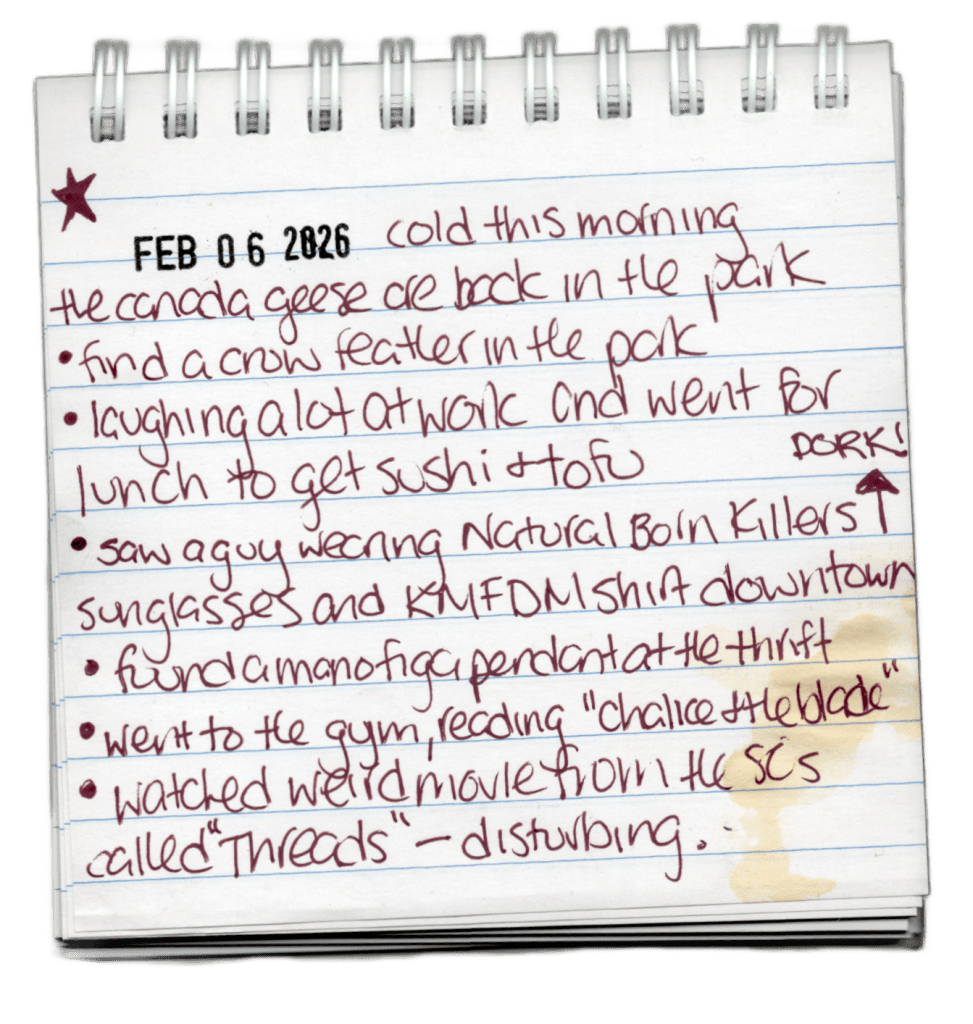 FEB 06 2026 cold this morning
the canada geese are back in the park
• find a crow feather in the park
• laughing a lot at work and went for
lunch to get sushi + tofu
DORK!
• saw a guy wearing Natural Born Killers
sunglasses and KMFDM shirt downtown
• found a mano figa pendant at the thrift
• went to the gym, reading "chalice + the blade"
• watched weird movie from the
called "Threads" – disturbing.